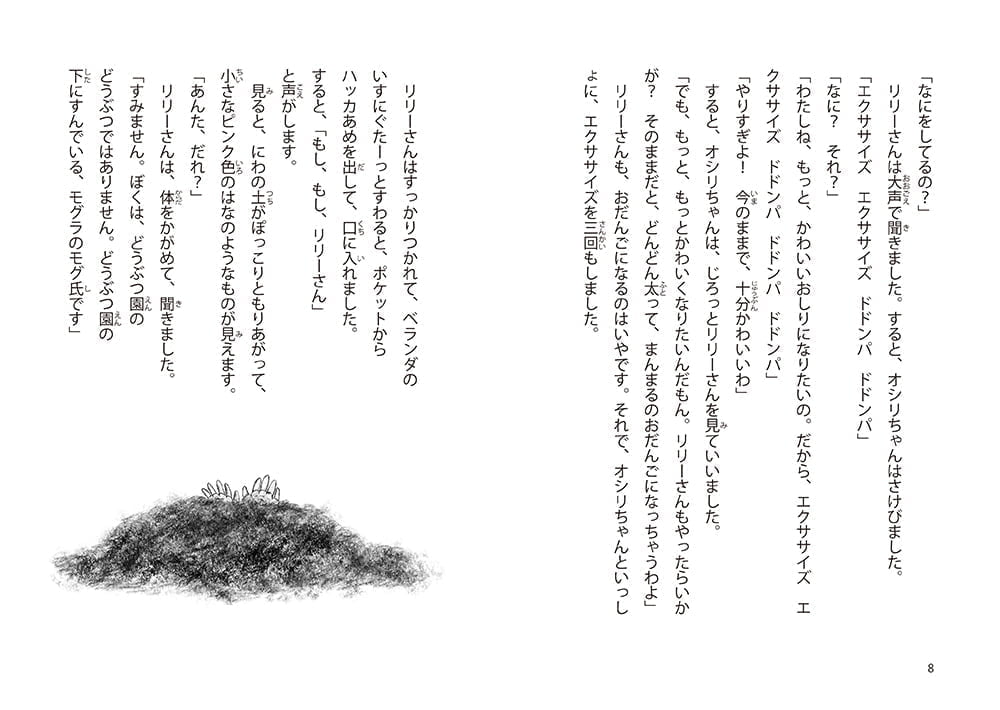 「なにをしてるの？」
リリーさんは大声で聞きました。すると、オシリちゃんはさけびました。
「エクササイズ　エクササイズ　ドドンパ　ドドンパ」
「なに？　それ？」
「わたしね、もっと、かわいいおしりになりたいの。だから、エクササイズ　エ
クササイズ　ドドンパ　ドドンパ　ドドンパ」
「やりすぎよ！　今のままで、十分かわいいわ」
すると、オシリちゃんは、じろっとリリーさんを見ていいました。
「でも、もっと、もっとかわいくなりたいんだもん。リリーさんもやったらいか
が？　そのままだと、どんどん太って、まんまるのおだんごになっちゃうわよ」
リリーさんも、おだんごになるのはいやです。それで、オシリちゃんといっし
ょに、エクササイズを三回もしました。
8
リリーさんはすっかりつかれて、ベランダの
いすにぐたーっとすわると、ポケットから
ハッカあめを出して、口に入れました。
すると、「もし、もし、リリーさん」
と声がします。
見ると、にわの土がぽっこりともりあがって、
小さなピンク色のはなのようなものが見えます。
「あんた、だれ？」
リリーさんは、体をかがめて、聞きました。
「すみません。ぼくは、どうぶつ園の
どうぶつではありません。どうぶつ園の
下にすんでいる、モグラのモグ氏です」